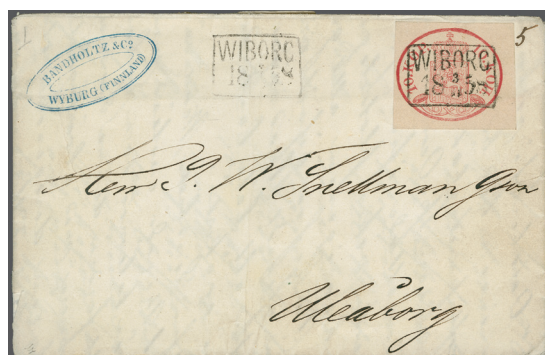 BANDHOLTZ & Cº
WYBURG (FINNLAND)
WIBORG
1858
WIBORG
1858
5
Herr J. W. Snellman Gson
Uleåborg